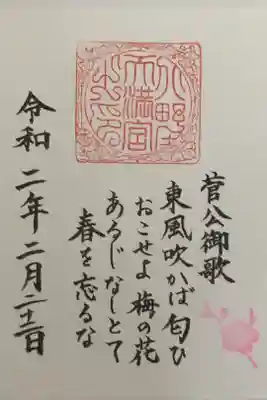 北野
天満宮
之印
菅公御歌
東風吹かば匂ひ
おこせよ梅の花
あるじなしとて
春を忘るな
令和二年二月日